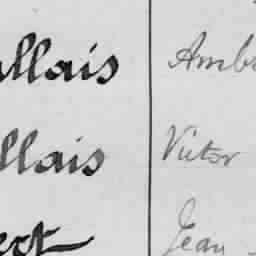 allais Amb
llais Victor
ert Jean